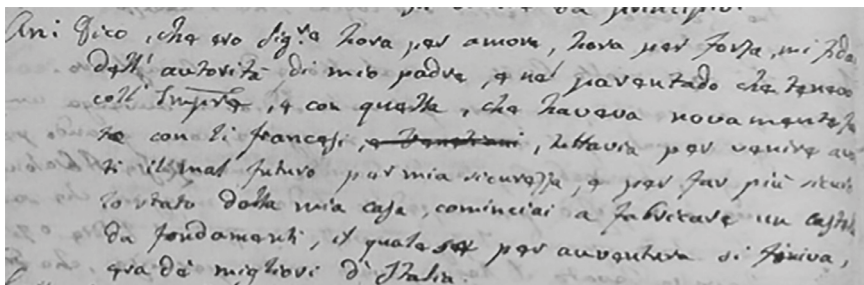 da principio.
Ani: Dico, che ero Sig.re hora per amore, hora per forza, mi fida
dell' autorità di mio padre, e nel parentado che tenevo
coll' Impre, e con quella, che haveva novamente fat
ta con li francesi, e Venetiani, tuttavia per venire avan
ti il mal futuro per mia sicurezza, e per far più sicuro
lo stato della mia casa, cominciai a fabricare un castel
da fondamenti, il quale se per avventura si finiva,
era de migliori d' Italia.